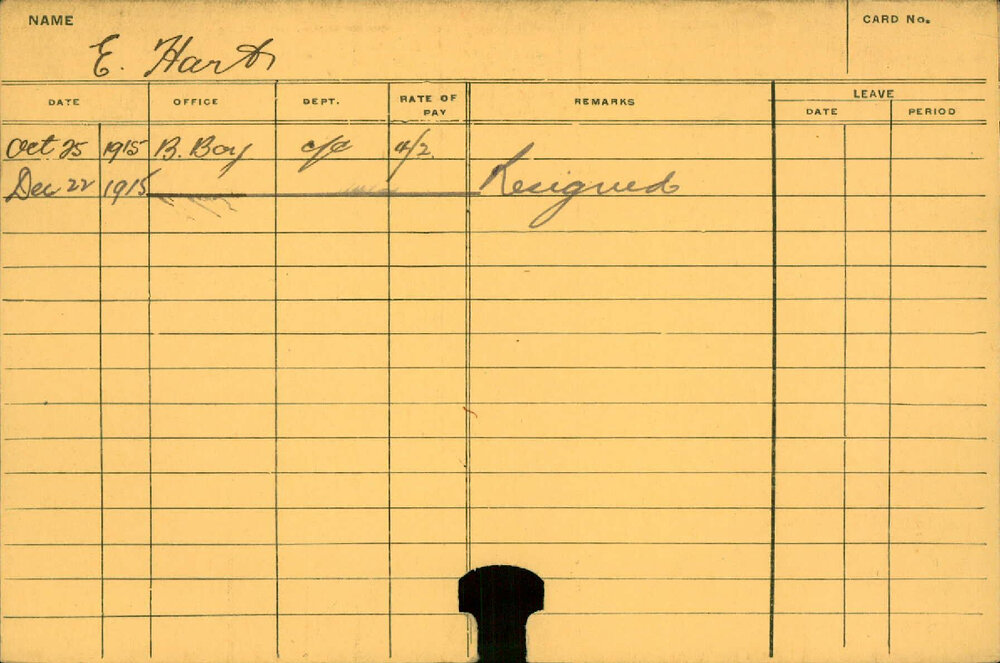 NAME
CARD No.
E. Hart
DATE OFFICE DEPT. RATE OF PAY REMARKS LEAVE
DATE PERIOD
Oct 25 1915 B. Boy c/o 4/2
Dec 22 1915 Resigned